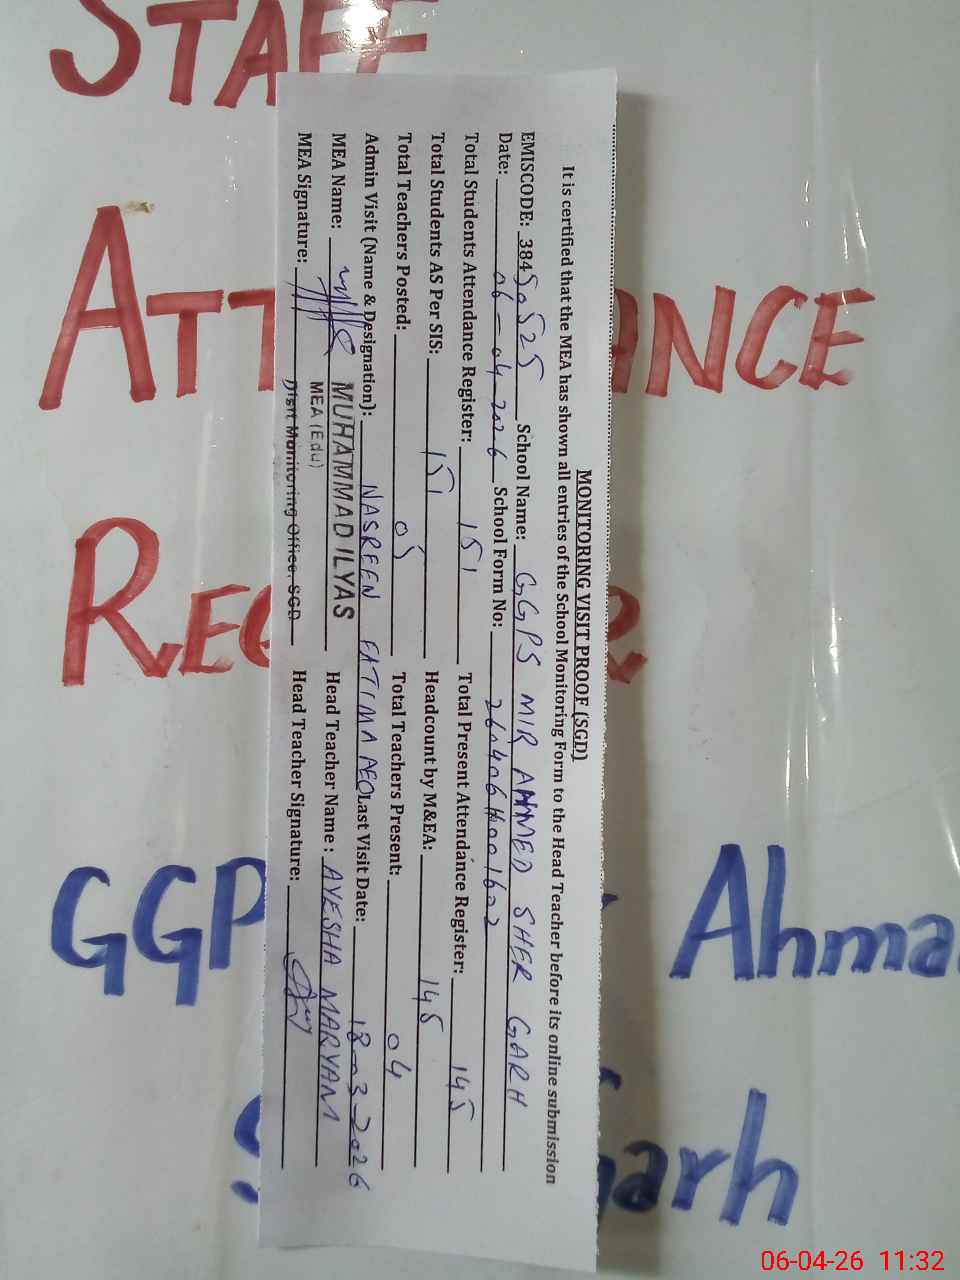 STAFF
ATT ANCE
REG R
GGP Ahma
Garh
MONITORING VISIT PROOF (SGD)
It is certified that the MEA has shown all entries of the School Monitoring Form to the Head Teacher before its online submission
EMISCODE: 38450525 School Name: GGPS MIR AHMED SHER GARH
Date: 06-04-2026 School Form No:
Total Students Attendance Register: 151 Total Present Attendance Register: 145
Total Students AS Per SIS: 151 Headcount by M&EA: 145
Total Teachers Posted: 05 Total Teachers Present: 04
Admin Visit (Name & Designation): NASREEN FATIMA AEO Last Visit Date: 18-03-2026
MEA Name: MUHAMMAD ILYAS Head Teacher Name : AYESHA MARYAM
MEA (Edu)
MEA Signature: Distt Monitoring Office, SGD Head Teacher Signature:
06-04-26 11:32